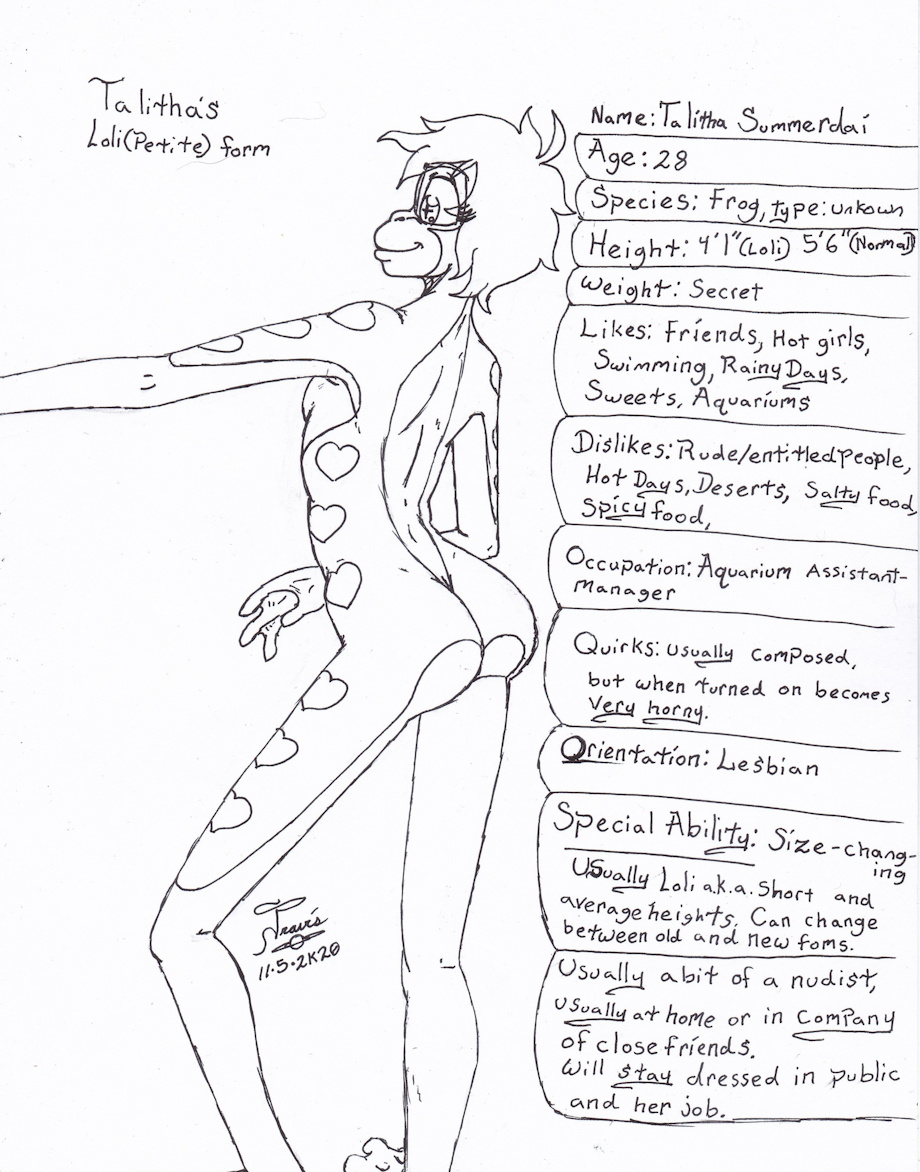 Talitha's
Loli(Petite) form
Name: Talitha Summerdai
Age: 28
Species: Frog, type: unkown
Height: 4'1"(Loli) 5'6"(Normal)
Weight: Secret
Likes: Friends, Hot girls,
Swimming, Rainy Days,
Sweets, Aquariums
Dislikes: Rude/entitled People,
Hot Days, Deserts, Salty food,
Spicy food,
Occupation: Aquarium Assistant-
manager
Quirks: usually composed,
but when turned on becomes
very horny.
Orientation: Lesbian
Special Ability: Size-chang-
ing
Usually Loli a.k.a. Short and
average heights. Can change
between old and new foms.
Usually a bit of a nudist,
usually at home or in company
of close friends.
Will stay dressed in public
and her job.
Travis
11.5.2K20